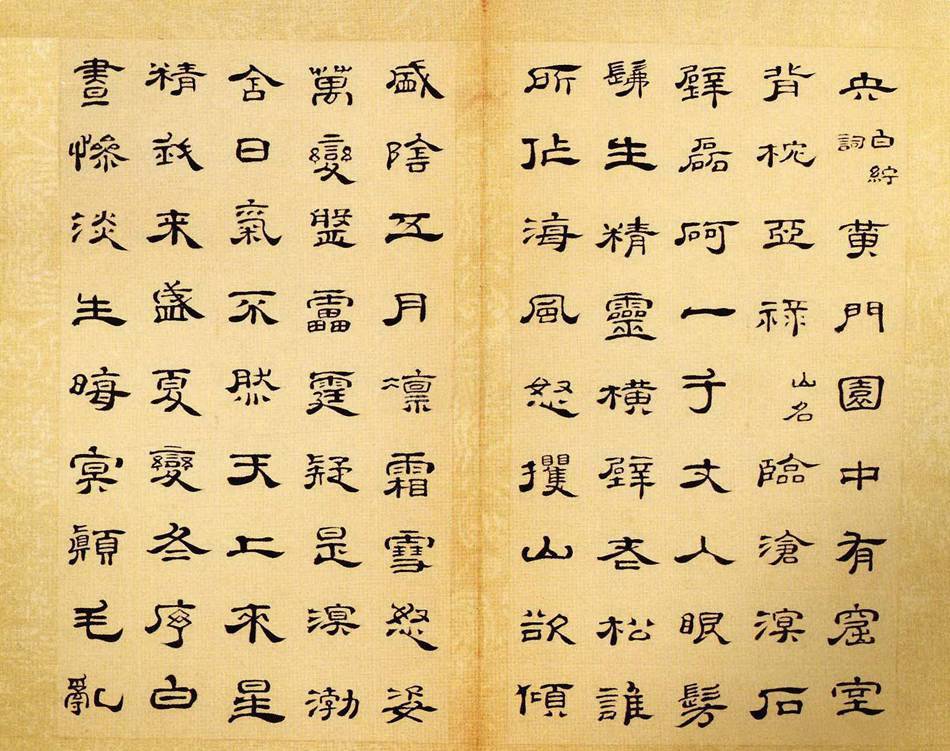 央白紵詞黃門園中有窟室
背枕亞祿山名臨滄溟石
壁磊砢一千丈人眼髣
髴生精靈橫壁老松誰
所作海風怒攫山欲傾
盛陰五月凛霜雪怒姿
萬變盤靁霆疑是溟渤
舍日氣不然天上來星
精我来盛夏變冬序白
晝慘淡生晦冥顛毛亂